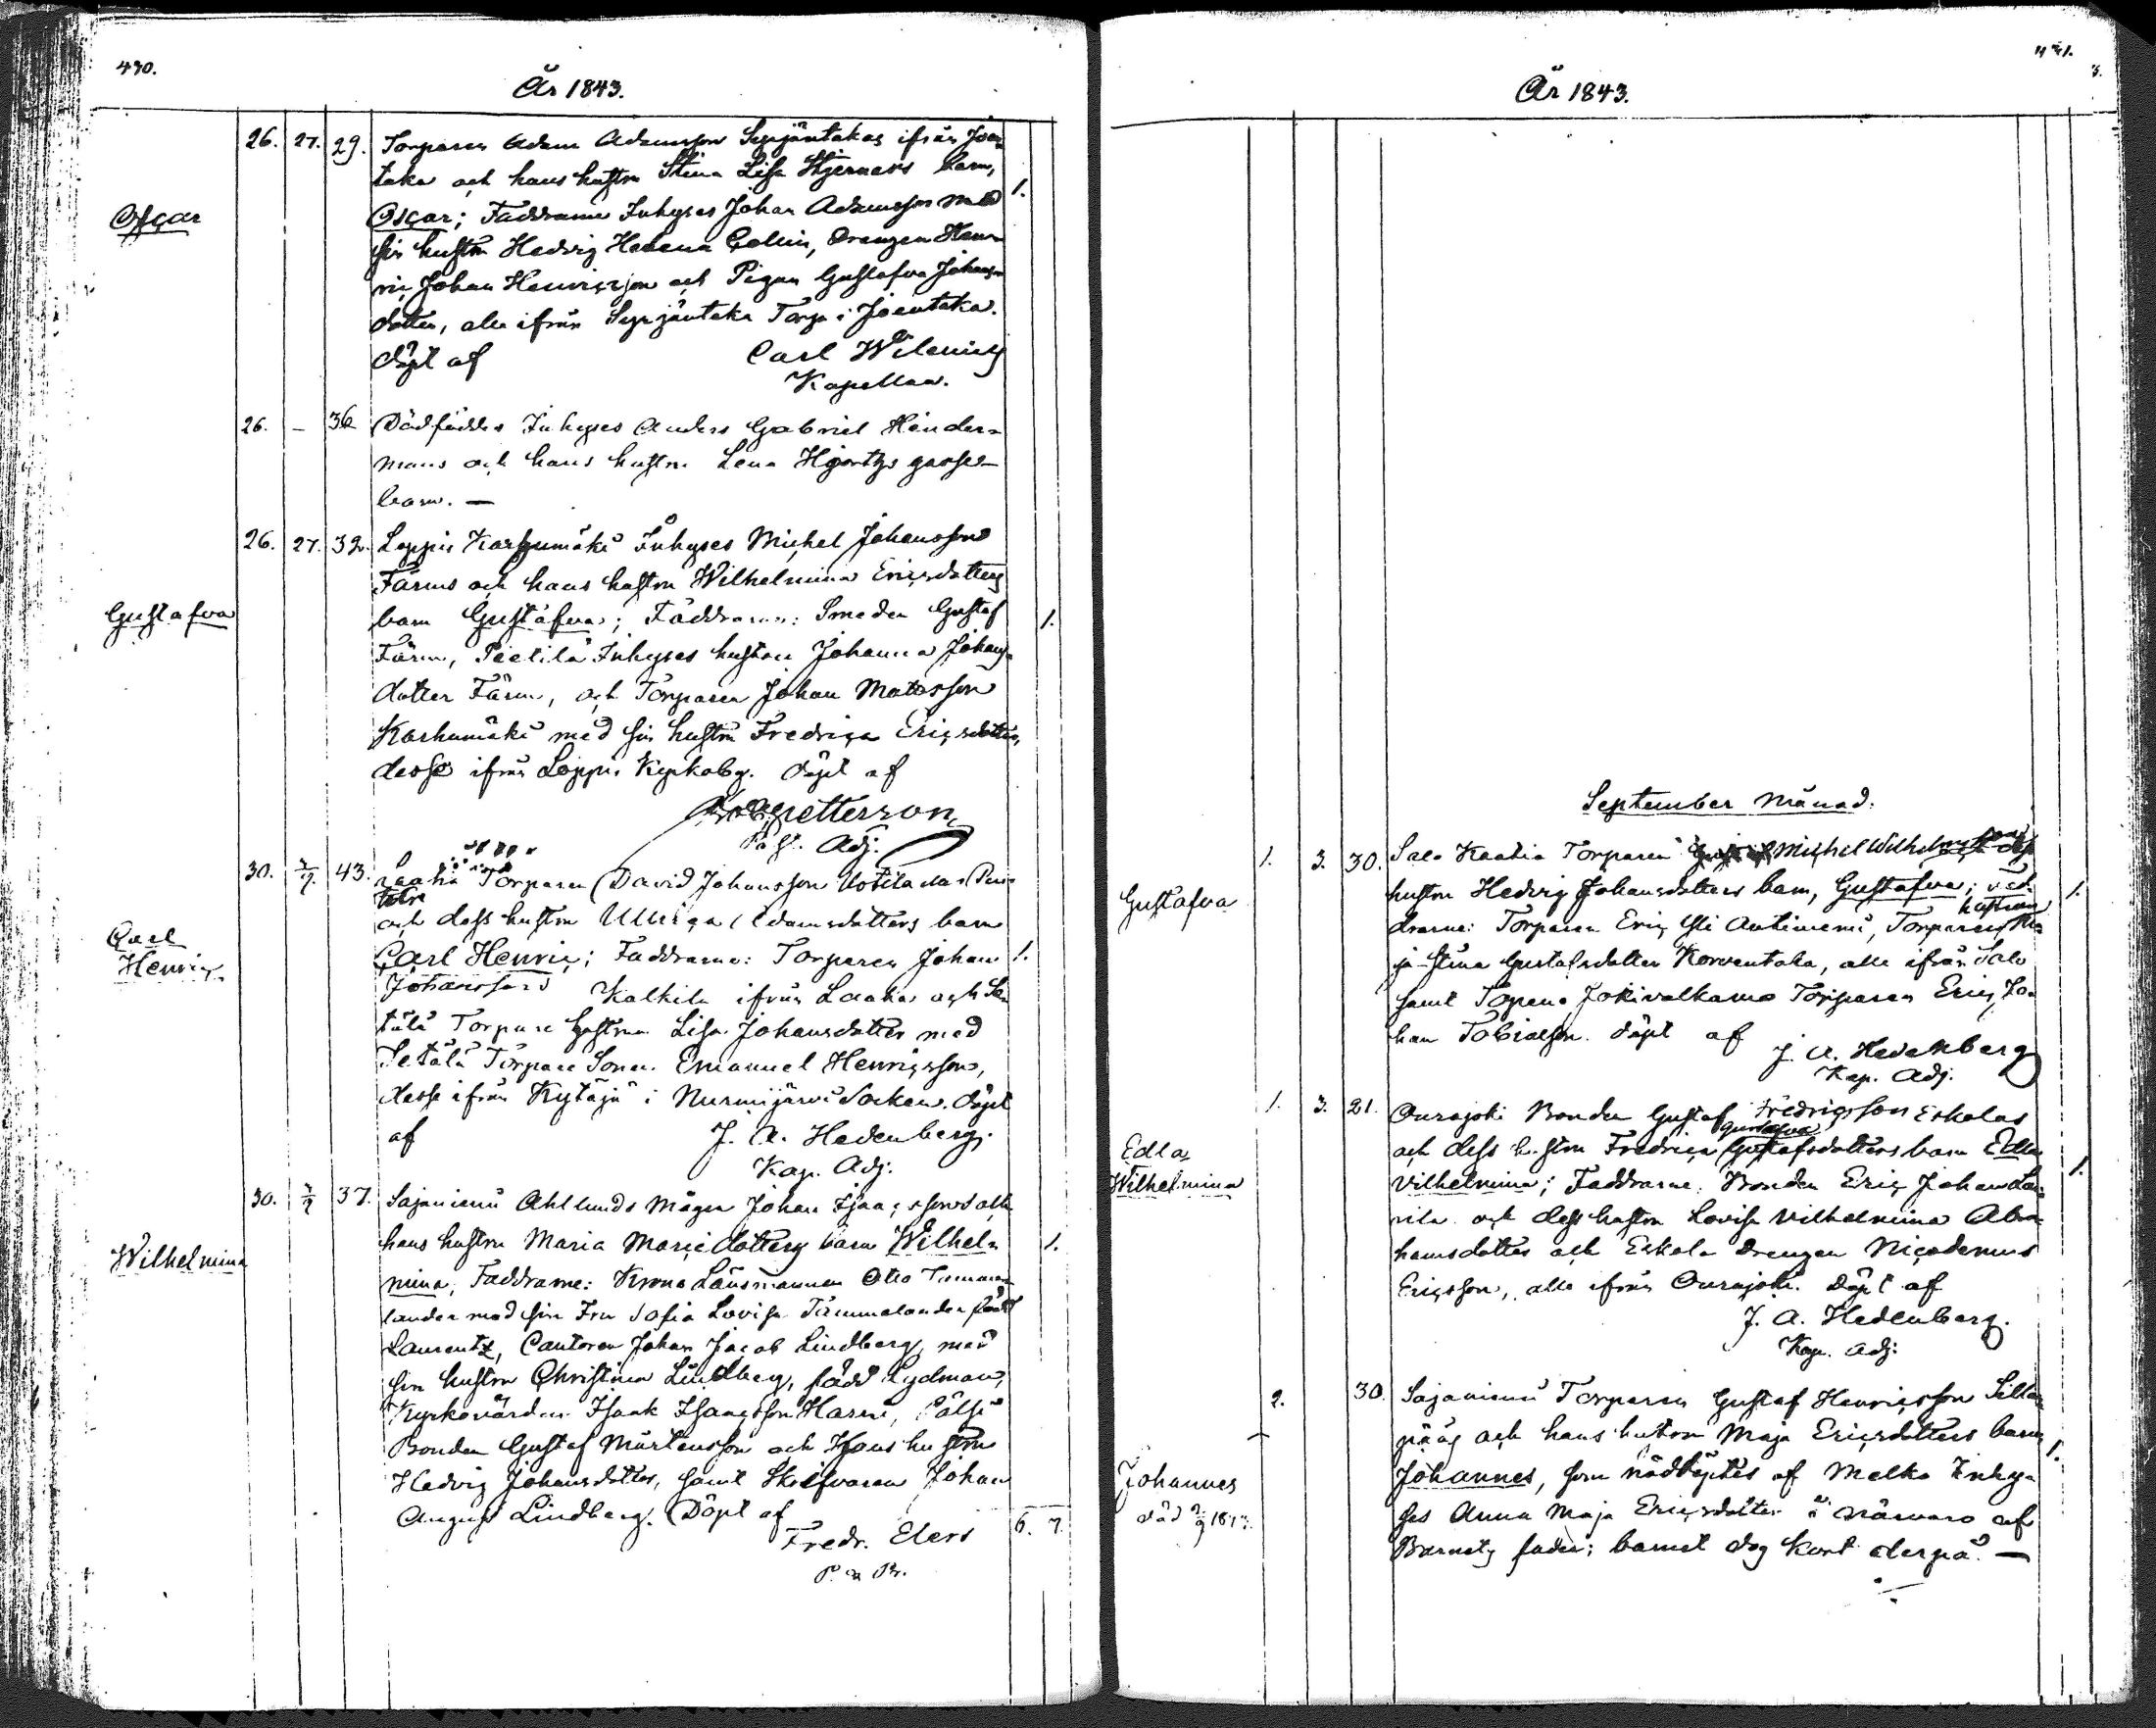 430.
År 1843.
26. 27. 29. Torparen Adam Adamsson Syrjäntakas ifrån Joen
taka och hans hustru Stina Lisa Stjernas barn,
Oscar
Oscar; Faddrarne Inhyses Johan Adamsson med 1.
sin hustru Hedvig Helena Collin, Drengen Hen-
ric Johan Henricsson och Pigan Gustafva Johans
dotter, alla ifrån Syrjäntaka Torp i Joentaka.
döpt af Carl Wilenius
Kapellan.
26. – 36 Dödföddes Inhyses Anders Gabriel Hinder-
mans och hans hustru Lena Hjortzs gosse-
barn. —
26. 27. 32. Loppis Karhumäki Inhyses Michel Johansson
Färms och hans hustru Wilhelmina Ericsdotters
Gustafva
barn Gustafva; Faddrarne: Smeden Gustaf 1.
Färm, Pietilä Inhyses hustru Johanna Johans-
dotter Färm, och Torparen Johan Matsson
Karhumäki med sin hustru Fredrica Ericsdotter,
desse ifrån Loppis Kyrkoby. döpt af
petterson,
Past. Adj.
30. 43. Torparen David Johansson
och dess hustru Ullrica Adamsdotters barn
Carl
Henric
Carl Henric; Faddrarne: Torparen Johan 1.
Johansson Kalkila ifrån Laaka och Se
tälä Torpare hustrun Lisa Johansdotter med
Setälä Torpare Sonen Emanuel Henricsson,
desse ifrån Kytäjä i Nurmijärvi Socken. döpt
af J. A. Hedenberg.
Kap. Adj.
30. 37. Sajaniemi Ahllunds Mågen Johan Isaacssons och
hans hustru Maria Maricdotters barn Wilhel- 1.
Wilhelmina
mina, Faddrarne: Krono Länsmannen Otto Tamma
lander med sin Fru Sofia Lovisa Tammelander född
Laurentz, Cantoren Johan Jacob Lindberg, med
sin hustru Christina Lindberg, född Lydman,
Kyrkovärden Isaak Isaacsson Harni, Pälsi
Bonden Gustaf Mårtensson och Hans hustru
Hedvig Johansdotter, samt Skrifvaren Johan
August Lindberg. Döpt af
Fredr. Elers 6. 7.
År 1843.
September månad.
1. 3. 30. Salo Kaatia Torparen Michel
Gustafva
hustru Hedvig Johansdotters barn, Gustafva; Fad- 1.
drarne: Torparen Eric Yli Antimemi, Torparens hustrun Ma
ja Stina Gustafsdotter Korventaka, alla ifrån Salo
samt Topeno Jokivalkama Torparen Eric Jo-
han Tobiasson. döpt af J. A. Hedenberg
Kap. Adj.
1. 3. 21. Ourajoki Bonden Gustaf Fredricsson Eskolas
och dess hustru Fredrica Gustafva Gustafsdotters barn Edla
Edla
Wilhelmina
Vilhelmina; Faddrarne: Bonden Eric Johan 1.
och dess hustru Lovisa Vilhelmina Abra-
hamsdotter och Eskola Drengen Nicodemus
Ericsson, alla ifrån Ourajoki. Döpt af
J. A. Hedenberg.
Kap. Adj.
2. 30. Sajaniemi Torparen Gustaf Henricsson Sillan
pääs och hans hustru Maja Ericsdotters barn 1.
Johannes
död 2/9 1843.
Johannes, som nöddöptes af Melko Inhy-
ses Anna Maja Ericsdotter i närvaro af
Barnets fader; barnet dog kort derpå. —